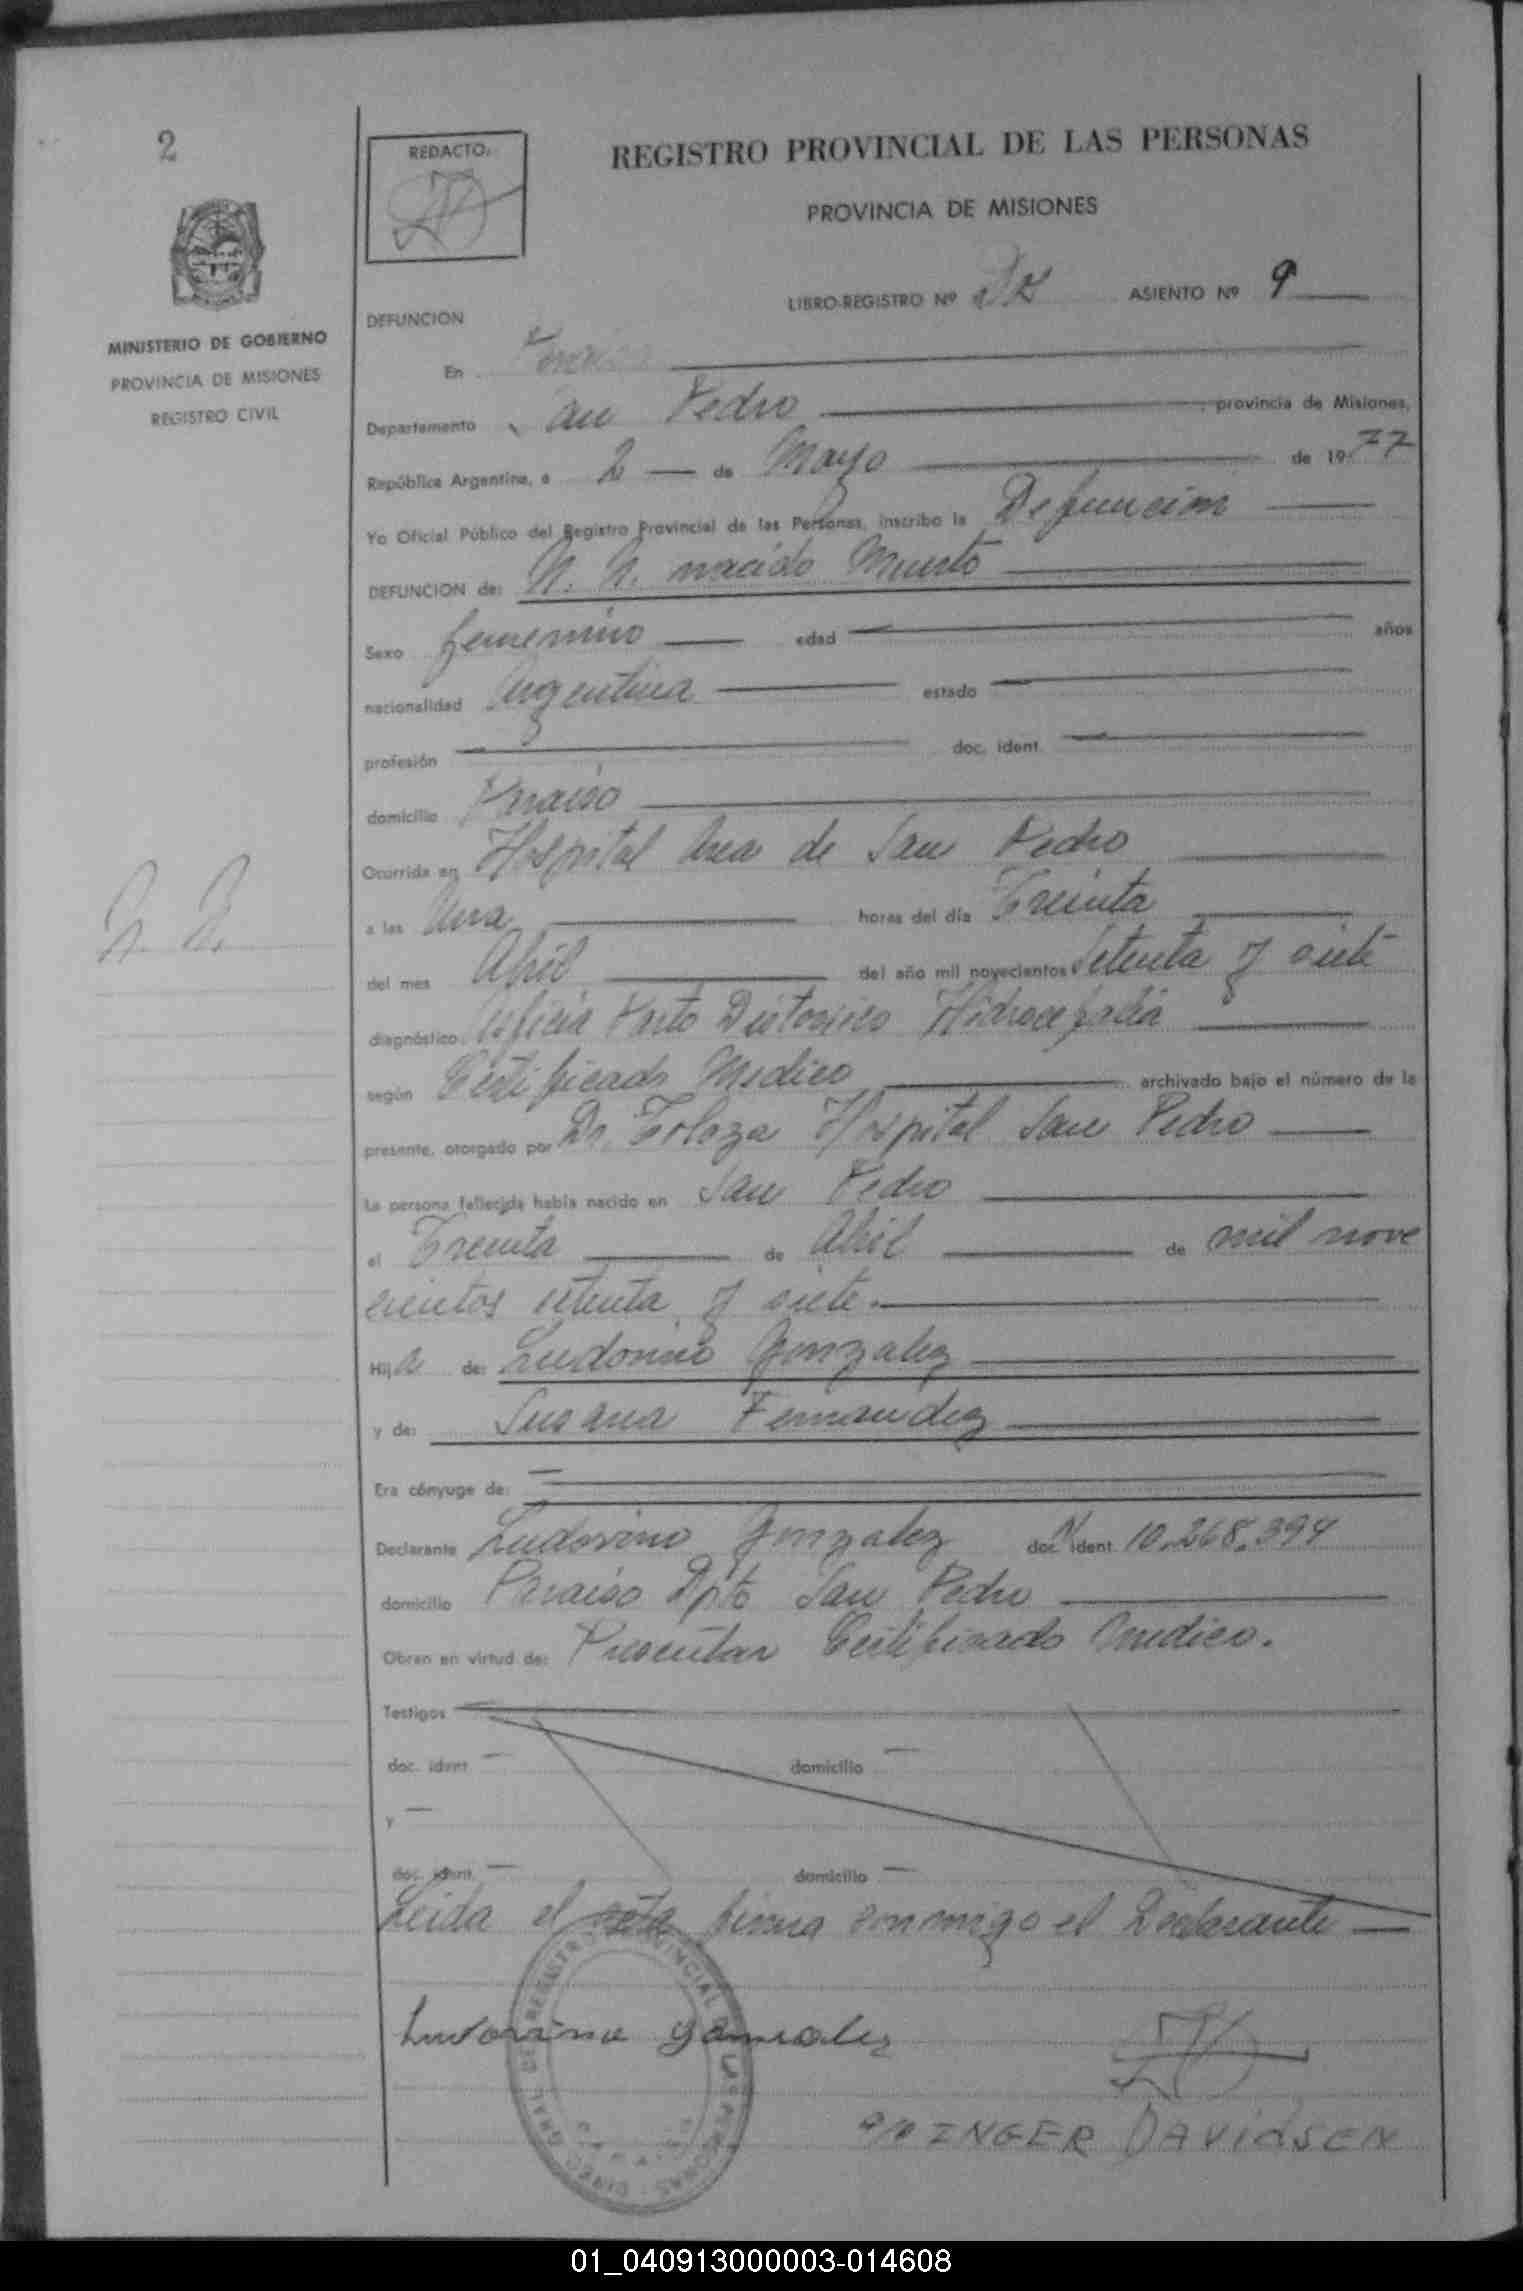 2
REDACTO:
REGISTRO PROVINCIAL DE LAS PERSONAS
PROVINCIA DE MISIONES
LIBRO-REGISTRO Nº ASIENTO Nº 9
MINISTERIO DE GOBIERNO
PROVINCIA DE MISIONES
REGISTRO CIVIL
DEFUNCION
En
Departamento San Pedro provincia de Misiones,
República Argentina, a 2 de Mayo de 1977
Yo Oficial Público del Registro Provincial de las Personas, inscribo la Defuncion
DEFUNCION de: N. N. nacido Muerto
Sexo femenino edad años
nacionalidad Argentina estado
profesión doc. ident.
domicilio Paraiso
Ocurrida en Hospital Area de San Pedro
N. N.
a las Una horas del día Treinta
del mes Abril del año mil novecientos Setenta y siete
diagnóstico: Asficia Parto Distosico Hidrocefalia
según Certificado Medico archivado bajo el número de la
presente, otorgado por Dr. Tolaza Hospital San Pedro
La persona fallecida había nacido en San Pedro
el Treinta de Abril de mil nove
cientos setenta y siete.
Hija de: Ludovino Gonzalez
y de: Susana Fernandez
Era cónyuge de:
Declarante Ludovino Gonzalez doc. ident. 10.268.394
domicilio Paraiso Dpto San Pedro
Obran en virtud de: Presentar Certificado Medico.
Testigos
doc. ident. domicilio
y
doc. ident. domicilio
Leida el acta firma conmigo el Declarante
Luvorino gonzalez
INGER DAVIDSEN
01_040913000003-014608